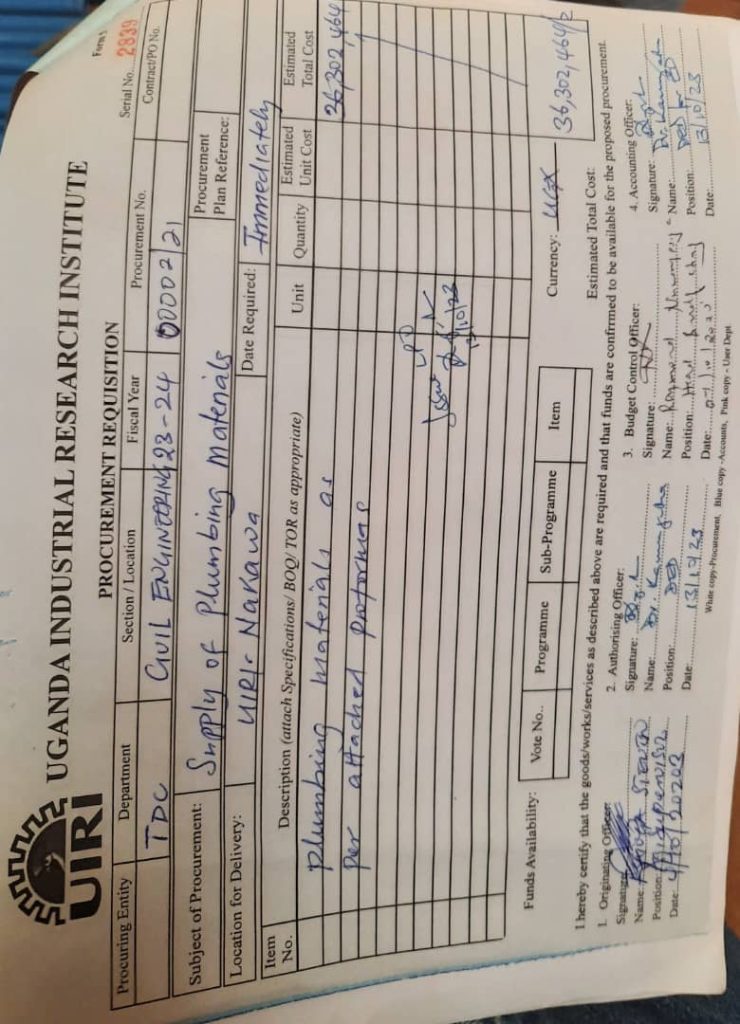 Form 5
UIRI
UGANDA INDUSTRIAL RESEARCH INSTITUTE
Serial No... 2839
PROCUREMENT REQUISITION
Procuring Entity Department Section / Location Fiscal Year Procurement No. Contract/PO No.
TDC CIVIL ENGINEERING 23-24 00002/21
Subject of Procurement: Supply of Plumbing Materials Procurement Plan Reference:
Location for Delivery: UIRI- Nakawa Date Required: Immediately
Item No. Description (attach Specifications/ BOQ/ TOR as appropriate) Unit Quantity Estimated Unit Cost Estimated Total Cost
Plumbing materials as 36,302,464
per attached proformas
Issue LPO
13/10/23
Currency: UGX 36,302,464/=
Funds Availability: Vote No.. Programme Sub-Programme Item Estimated Total Cost:
I hereby certify that the goods/works/services as described above are required and that funds are confirmed to be available for the proposed procurement.
1. Originating Officer: 2. Authorising Officer: 3. Budget Control Officer: 4. Accounting Officer:
Signature: Signature: Signature: Signature:
Name: Name: Dr. Name: Raymond Name: Dr.
Position: Supervisor Position: DED Position: Head Position: DED for ED
Date: 4/10/20203 Date: 13/10/23 Date: Date: 13/10/23
White copy-Procurement, Blue copy -Accounts, Pink copy - User Dept